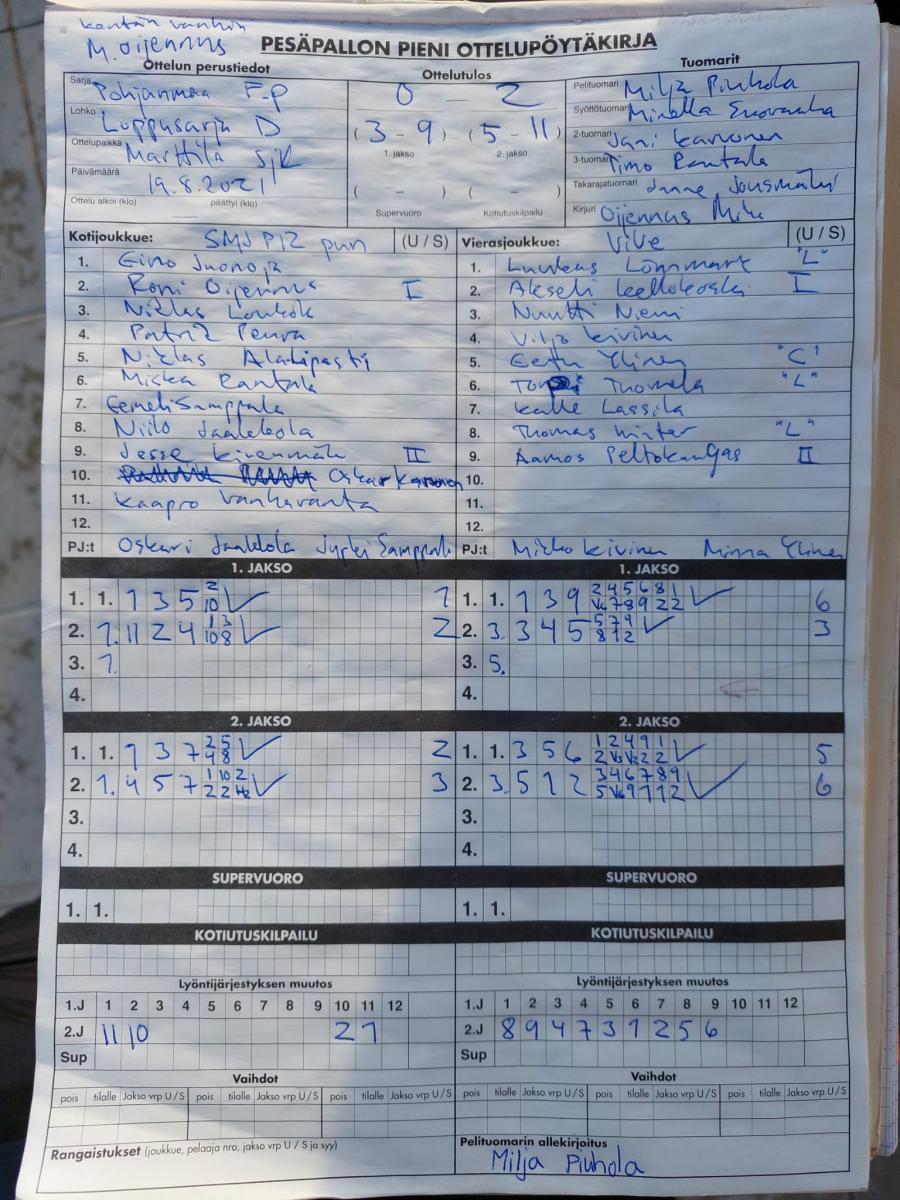 kentän vanhin
M. Oijennus
PESÄPALLON PIENI OTTELUPÖYTÄKIRJA
Ottelun perustiedot
Sarja Pohjanmaa F-P
Lohko Loppusarja D
Ottelupaikka Marttila SJK
Päivämäärä 19.8.2021
Ottelu alkoi (klo) päättyi (klo)
Ottelutulos
0 - 2
(3 - 9) (5 - 11)
1. jakso 2. jakso
( - ) ( - )
Supervuoro Kotiutuskilpailu
Tuomarit
Pelituomari Milja Piuhola
Syöttötuomari Minella
2-tuomari Jani Karvonen
3-tuomari Timo Rantala
Takarajatuomari Janne
Kirjuri Oijennus Mika
Kotijoukkue: SMJ P12 pun (U / S)
1. Eino Juonoja
2. Roni Oijennus I
3. Niklas
4. Patrik Penra
5. Niklas
6. Miska Rantala
7. Eemeli Samppala
8. Niilo Jaakkola
9. Jesse Kivenmäki II
10. Oskar Karvonen
11. Kaapro Vanharanta
12.
PJ:t Oskari Jaakkola Jyrki Samppala
Vierasjoukkue: ViVe (U / S)
1. Luukas Lönnmark "L"
2. Akseli Kellokoski I
3. Nuutti Niemi
4. Viljo Kivinen
5. Eetu Ylinen "C"
6. Tuomela "L"
7. Kalle Lassila
8. Thomas "L"
9. Aamos Peltokangas II
10.
11.
12.
PJ:t Mirko Kivinen Minna Ylinen
1. JAKSO
1. 1. 1 3 5 2 10 1
2. 7. 11 2 4 1 3 10 8 2
3. 7.
4.
1. JAKSO
1. 1. 1 3 9 2 4 5 6 8 1 6
2. 3. 3 4 5 5 7 9 8 1 2 3
3. 5.
4.
2. JAKSO
1. 1. 1 3 7 2 5 4 8 2
2. 1. 4 5 7 1 10 2 3
3.
4.
2. JAKSO
1. 1. 3 5 6 1 2 4 9 1 5
2. 3. 5 1 2 3 4 6 7 8 9 6
3.
4.
SUPERVUORO
1. 1.
SUPERVUORO
1. 1.
KOTIUTUSKILPAILU
KOTIUTUSKILPAILU
Lyöntijärjestyksen muutos
1.J 1 2 3 4 5 6 7 8 9 10 11 12
2.J 11 10 2 1
Sup
Lyöntijärjestyksen muutos
1.J 1 2 3 4 5 6 7 8 9 10 11 12
2.J 8 9 4 7 3 1 2 5 6
Sup
Vaihdot
pois tilalle Jakso vrp U / S pois tilalle Jakso vrp U / S pois tilalle Jakso vrp U / S
Vaihdot
pois tilalle Jakso vrp U / S pois tilalle Jakso vrp U / S pois tilalle Jakso vrp U / S
Rangaistukset (joukkue, pelaaja nro, jakso vrp U / S ja syy)
Pelituomarin allekirjoitus
Milja Piuhola